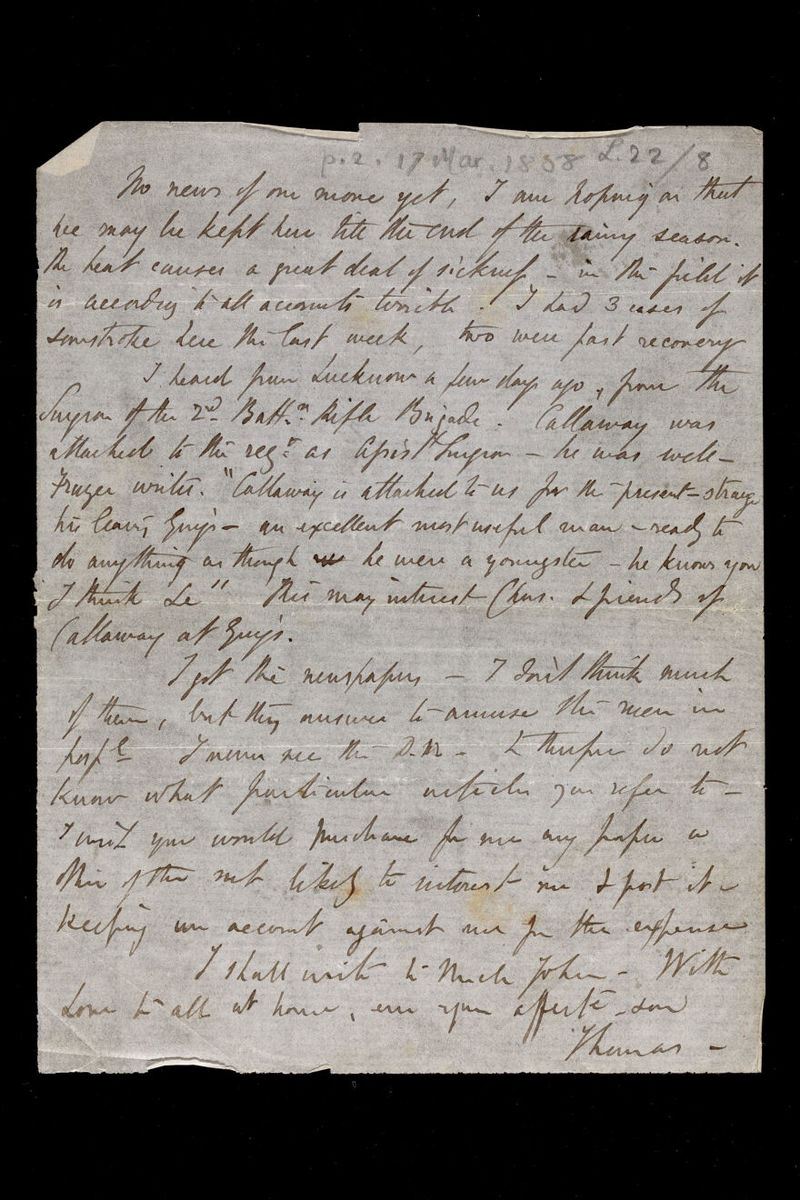 p.2. 17 Mar. 1858 L.22/8
No news of our move yet, I am hoping on that
we may be kept here till the end of the rainy season.
The heat causes a great deal of sickness - in the field it
is according to all accounts terrible. I had 3 cases of
sunstroke here the last week, two were past recovery
I heard from Lucknow a few days ago, from the
Surgeon of the 2nd Battn Rifle Brigade. Callaway was
attached to the regt as Assist Surgeon - he was well -
Frazer writes. "Callaway is attached to us for the present - strange
his leaving Guy's - an excellent most useful man - ready to
do anything as though he were a youngster - he knows you
I think &c" This may interest Chas. & friends of
Callaway at Guy's.
I got the newspapers - I don't think much
of them, but they answer to amuse the men in
hospl I never see the D.N. - & therefore do not
know what particular articles you refer to -
I wish you would purchase for me any paper or
of the likely to interest me & post it -
keeping an account against me for the expense
I shall write to Uncle John - With
Love to all at home, ever your affecte son
Thomas -